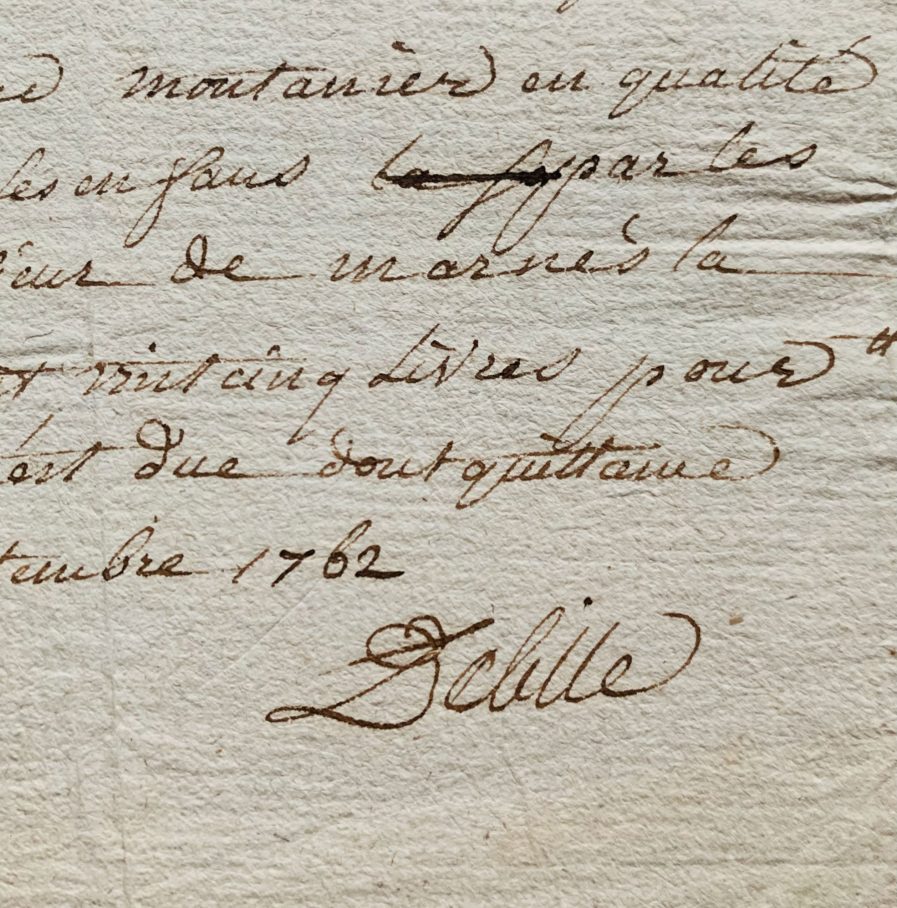 moutanier en qualité
les enfans la par les
ieur de marnés la
vint cinq Livres pour #
ést Due dont quittance
tembre 1762
Delille